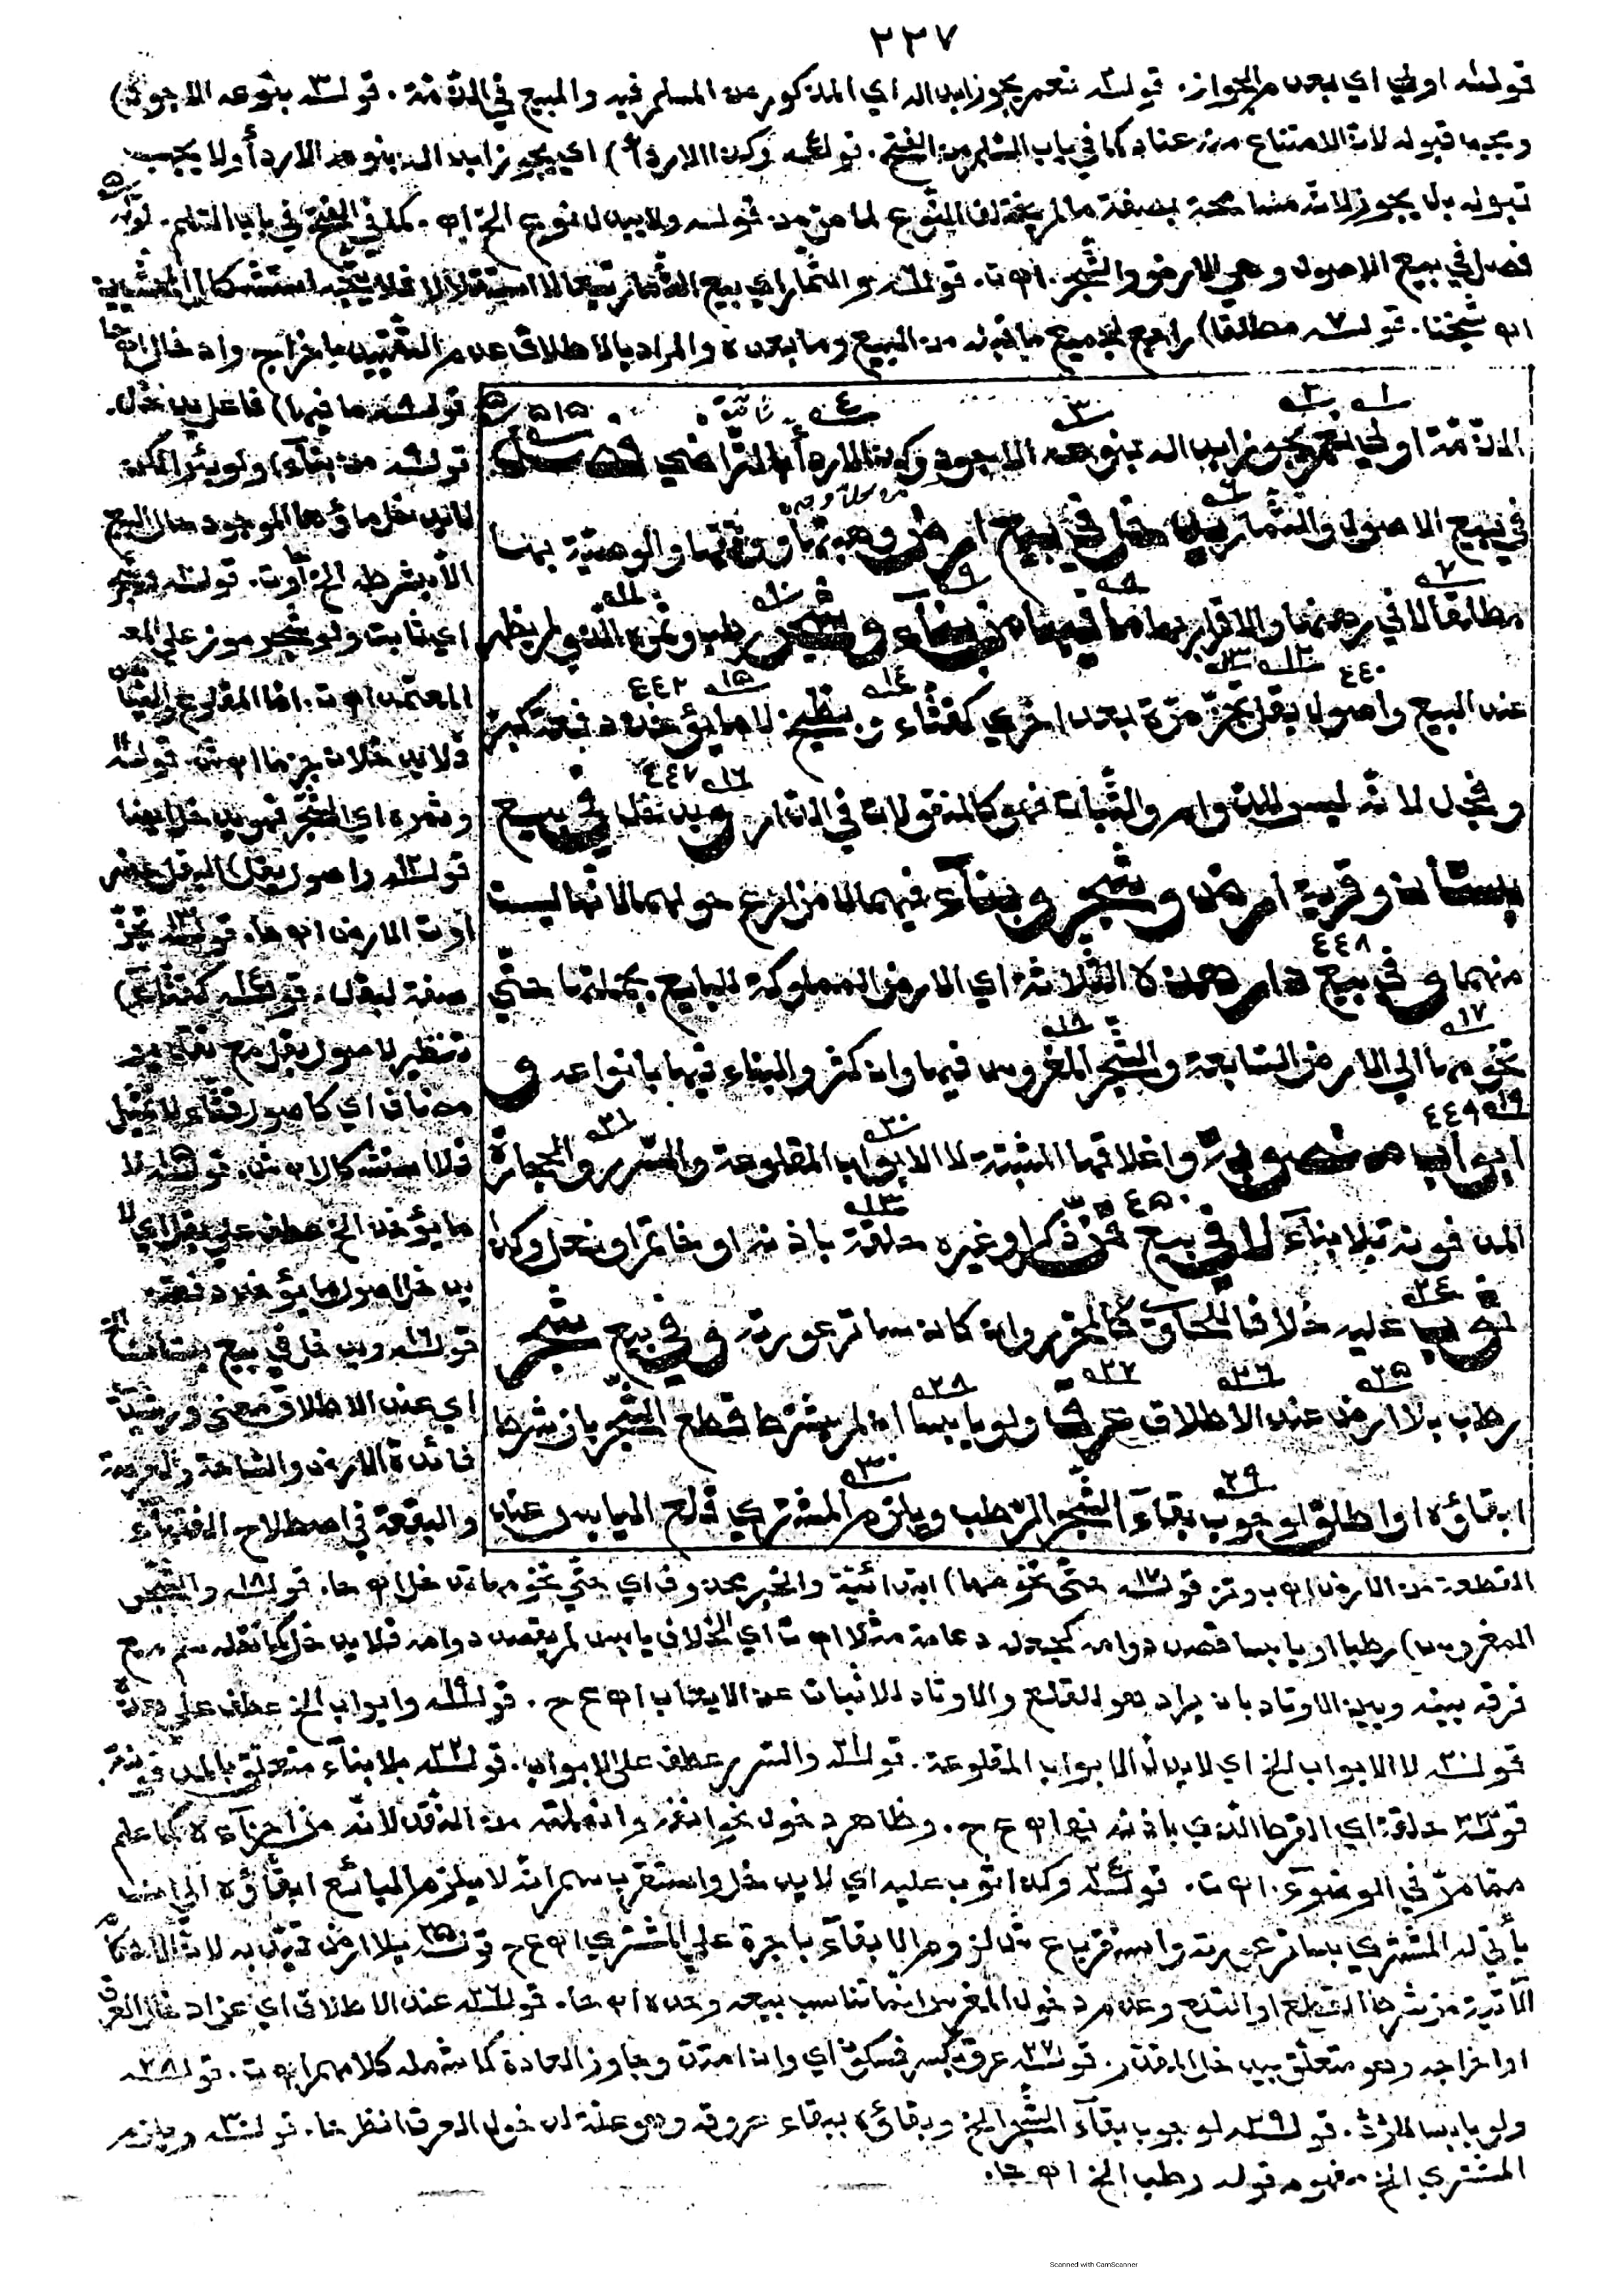 ٢٣٧
قوله اولي اي بعدم الجواز. قوله نعم يجوز ابدال اي المذكور من المسلم فيه والمبيع في الذمة. قوله ٣ بنوعه الاجود)
ويجب قبوله لان الامتناع منه عناد كما في باب السلم من الفتح. قوله ٤ وكذا الاردأ) اي يجوز ابدال بنوعه الاردأ ولا يجب
قبوله بل يجوز لانه مسامحة بصفة لما مر من قوله ولا يبدل بنوع الخ اه. كما في الفتح في باب السلم. قوله ٥
فصل في بيع الاصول وهي الارض والشجر. اه ت. قوله ٦ والثمار اي بيع الثمار تبعا لا استقلالا فلا يتجه
اه شيخنا. قوله ٧ مطلقا) راجع لجميع ما قبله من البيع وما بعده والمراد بالاطلاق عدم التقييد باخراج وادخال اه حا
الذمة اولي نعم يجوز ابدال بنوعه الاجود وكذا الاردأ بالتراضي فصل
في بيع الاصول والثمار يدخل في بيع ارض وهبتها ووقفها والوصية بها
مطلقا لا في رهنها والاقرار بها ما فيها من بناء وشجر رطب وثمره الذي لم يظهر
عند البيع واصول بقل تجز مرة بعد اخري كقثاء وبطيخ لا ما يؤخذ دفعة كبر
وفجل لانه ليس للدوام والثبات فهو كالمنقولات في الدار ويدخل في بيع
بستان وقرية ارض وشجر وبناء فيهما لا مزارع حولهما لانها ليست
منهما وفي بيع دار هذه الثلاثة اي الارض المملوكة للبايع بجملتها حتي
تخومها الي الارض السابعة والشجر المغروس فيها وان كثر والبناء فيها بانواعه و
ابواب منصوبة واغلاقها المثبتة لا الابواب المقلوعة والسرر والحجارة
المدفونة بلا بناء لا في بيع قن ذكر او غيره حلقة باذنه او خاتم او نعل وكذا
ثوب عليه خلافا للحاوي كالمحرر وان كان ساتر عورته وفي بيع شجر
رطب بلا ارض عند الاطلاق عرق ولو يابسا ان لم يشترط قطع الشجر بان شرط
ابقاؤه او اطلق لوجوب بقاء الشجر الرطب ويلزم المشتري قلع اليابس عند
قوله ٨ ما فيها) فاعل يدخل.
قوله ٩ من بناء) ولو بئرا لكن
لا يدخل ماؤها الموجود حال البيع
الا بشرطه الخ اه ت. قوله ١٠ وشجر
اي نابت ولو شجر موز علي
المعتمد اه ت. اما المقلوع
فلا يدخلان جزما اه ش. قوله ١١
وثمره اي الشجر فهو يدخل ايضا
قوله ١٢ واصول بقل) البقل خضر
اوت الارض اه حا. قوله ١٣ تجز
صفة لبقل. قوله ١٤ كقثاء)
تنظير لاصول بقل مع تقدير
مضاف اي كاصول قثاء لا تمثيل
فلا استشكال اه ش. قوله ١٥ لا
ما يؤخذ الخ عطف علي بقل اي لا
يدخل اصول ما يؤخذ دفعة.
قوله ١٦ ويدخل في بيع بستان الخ
اي عند الاطلاق
فائدة الارض والساحة والعرصة
والبقعة في اصطلاح الفقهاء
القطعة من الارض اه ب. قوله ١٧ حتي تخومها) ابتدائية والخبر محذوف اي حتي تخومها تدخل اه حا. قوله ١٨ والشجر
المغروس) رطبا او يابسا قصد دوامه كجعله دعامة مثلا اه ت اي بخلاف يابس لم يقصد دوامه فلا يدخل كما نقله سم مع
فرقه بينه وبين الاوتاد بان يراد هو للقلع والاوتاد للاثبات عن الايعاب اه ع ح. قوله ١٩ وابواب الخ عطف علي هذه
قوله ٢٠ لا الابواب الخ اي لا يدخل الابواب المقلوعة. قوله ٢١ والسرر عطف علي الابواب. قوله ٢٢ بلا بناء متعلق بالمدفونة.
قوله ٢٣ حلقة اي القرط الذي باذنه اه ع ح. وظاهر دخول نحو انفه وانملته من النقد لانه من اجزاءه كما علم
مما مر في الوضوء. اه ت. قوله ٢٤ وكذا ثوب عليه اي لا يدخل واستقرب سم انه لا يلزم البائع ابقاؤه الي ان
يأتي له المشتري بساتر عورته واستقرب ع ش لزوم الابقاء باجرة علي المشتري اه ع ح قوله ٢٥ بلا ارض قيد به لان
الآتية من شرط القطع او القلع وعدم دخول المغرس انما تناسب بيعه وحده اه حا. قوله ٢٦ عند الاطلاق اي عن ادخال العرق
او اخراجه وهو متعلق بيدخل المقدر. قوله ٢٧ عرق بكسر فسكون اي وان امتد وجاوز العادة كما شمله كلامهم اه ت. قوله ٢٨
ولو يابسا قوله ٢٩ لوجوب بقاء الشجر الخ وبقاؤه ببقاء عروقه وهو علة لدخول العرق انظر حا. قوله ٣٠ ويلزم
المشتري الخ مفهوم قوله رطب الخ اه حا.
Scanned with CamScanner